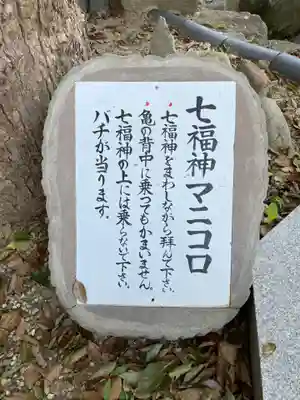 七福神マニコロ
七福神をまわしながら拝んで下さい。
亀の背中に乗ってもかまいません。
七福神の上には乗らないで下さい。
バチが当ります。